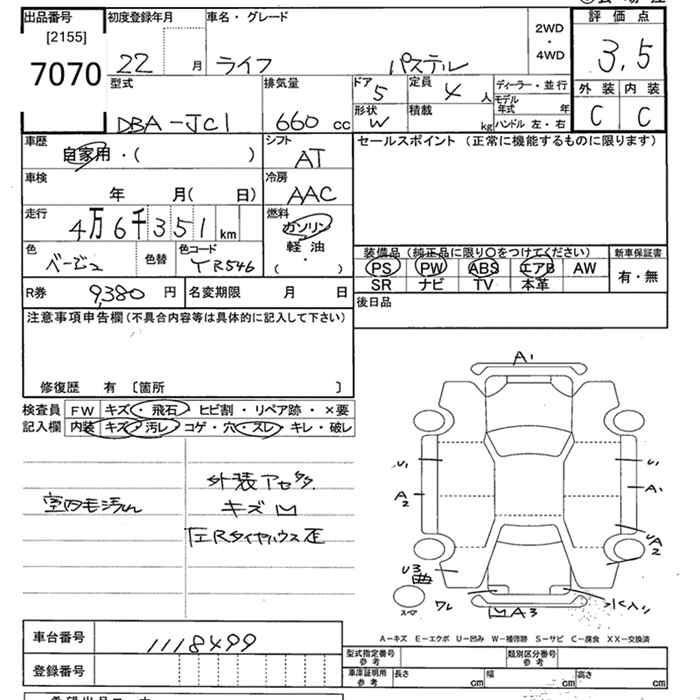 出品番号 初度登録年月 車名・グレード 評価点
[2155]
7070
22 月 ライフ パステル
2WD
・
4WD
3,5
型式 排気量 ドア 定員 ディーラー・並行 外装 内装
5 4 人
モデル年式 年
DBA-JC1 660 cc
形状 積載
W kg ハンドル 左・右
C C
車歴 シフト セールスポイント (正常に機能するものに限ります)
自家用・( ) AT
車検 冷房
年 月( 日) AAC
走行 燃料
4万6千351 km ガソリン
色 色替 色コード 軽油
ベージュ YR546 ( ・ )
装備品 (純正品に限り○をつけてください) 新車保証書
PS PW ABS エアB AW 有・無
SR ナビ TV 本革
R券 9,380 円 名変期限 月 日 後日品
注意事項申告欄 (不具合内容等は具体的に記入して下さい)
修復歴 有 〔箇所 〕
検査員 FW キズ・飛石 ヒビ割・リペア跡・×要
記入欄 内装 キズ・汚レ コゲ・穴・スレ・キレ・破レ
A1
U1 U1
A2 A1
外装アセ
室内毛汚れ キズ凹
左Rタイヤハウス歪
UA2
U3
スマ ワレ 凹A3 水入り
A-キズ E-エクボ U-凹み W-補修跡 S-サビ C-腐食 XX-交換済
車台番号 1118499
登録番号
型式指定番号 参考 類別区分番号 参考
車庫証明用 参考 長さ cm 幅 cm 高さ cm